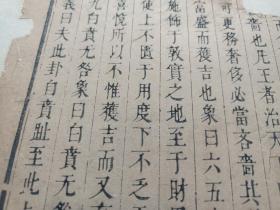 嗇也凡王者治天
可更務奢侈必當吝嗇共
富盛而獲吉也象曰六五
施飾于敦實之地至于財
使上不匱于用度下不乏
喜悅所以不惟獲吉而又有
九白賁无咎象曰白賁无
義曰夫此卦自賁趾至此